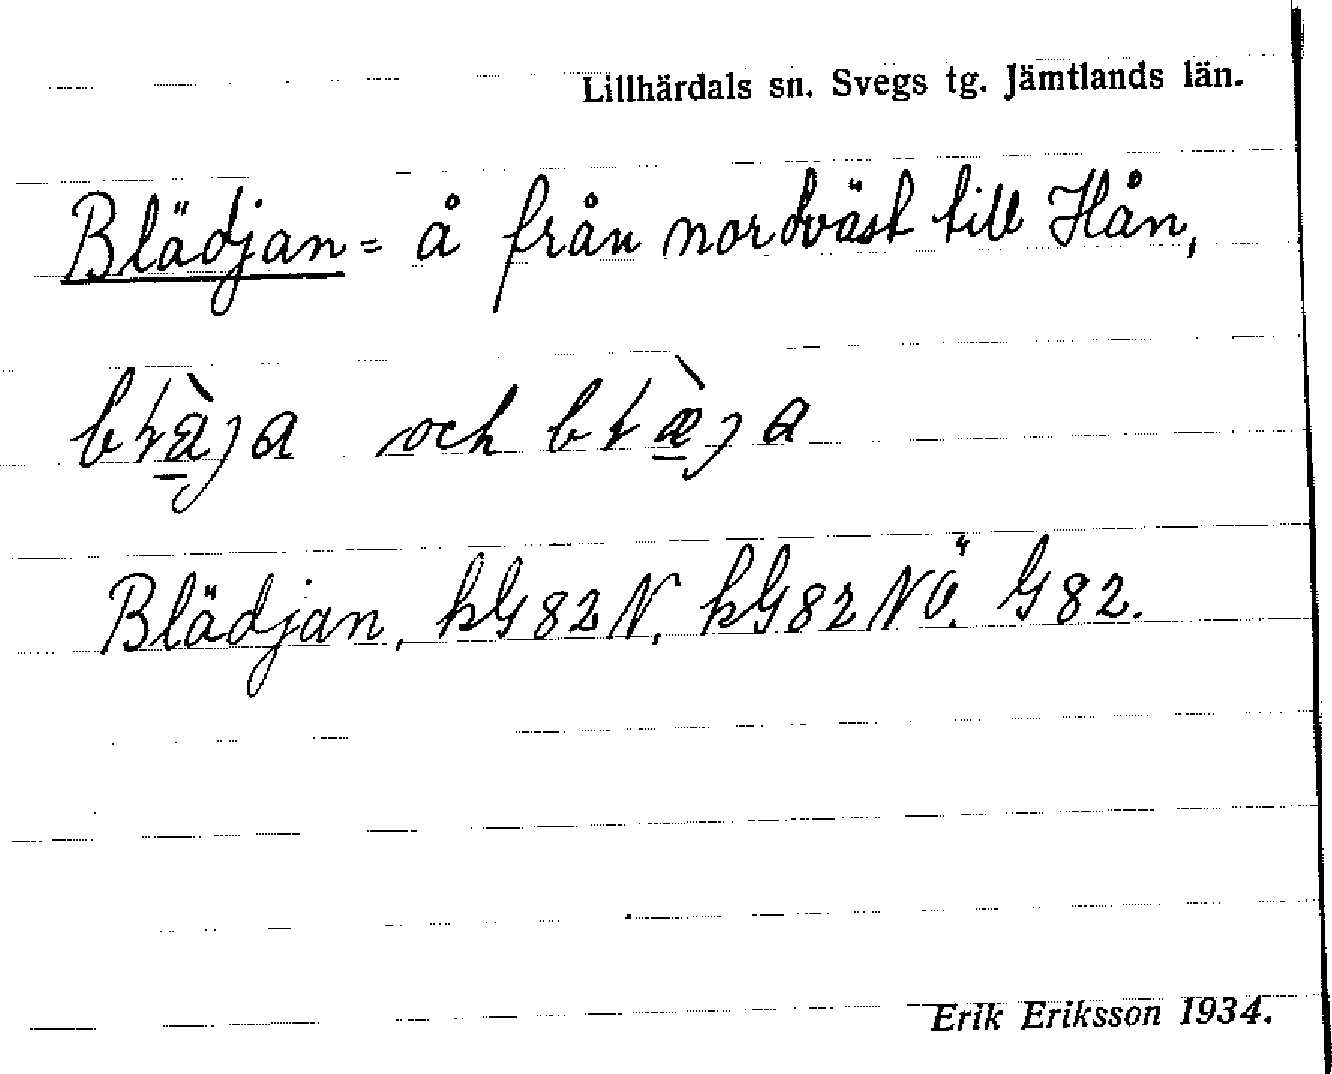 Lillhärdals sn. Svegs tg. Jämtlands län.
Blädjan = å från nordväst till Hån,
och
Blädjan, kG82N, kG82NÖ. G82.
Erik Eriksson 1934.